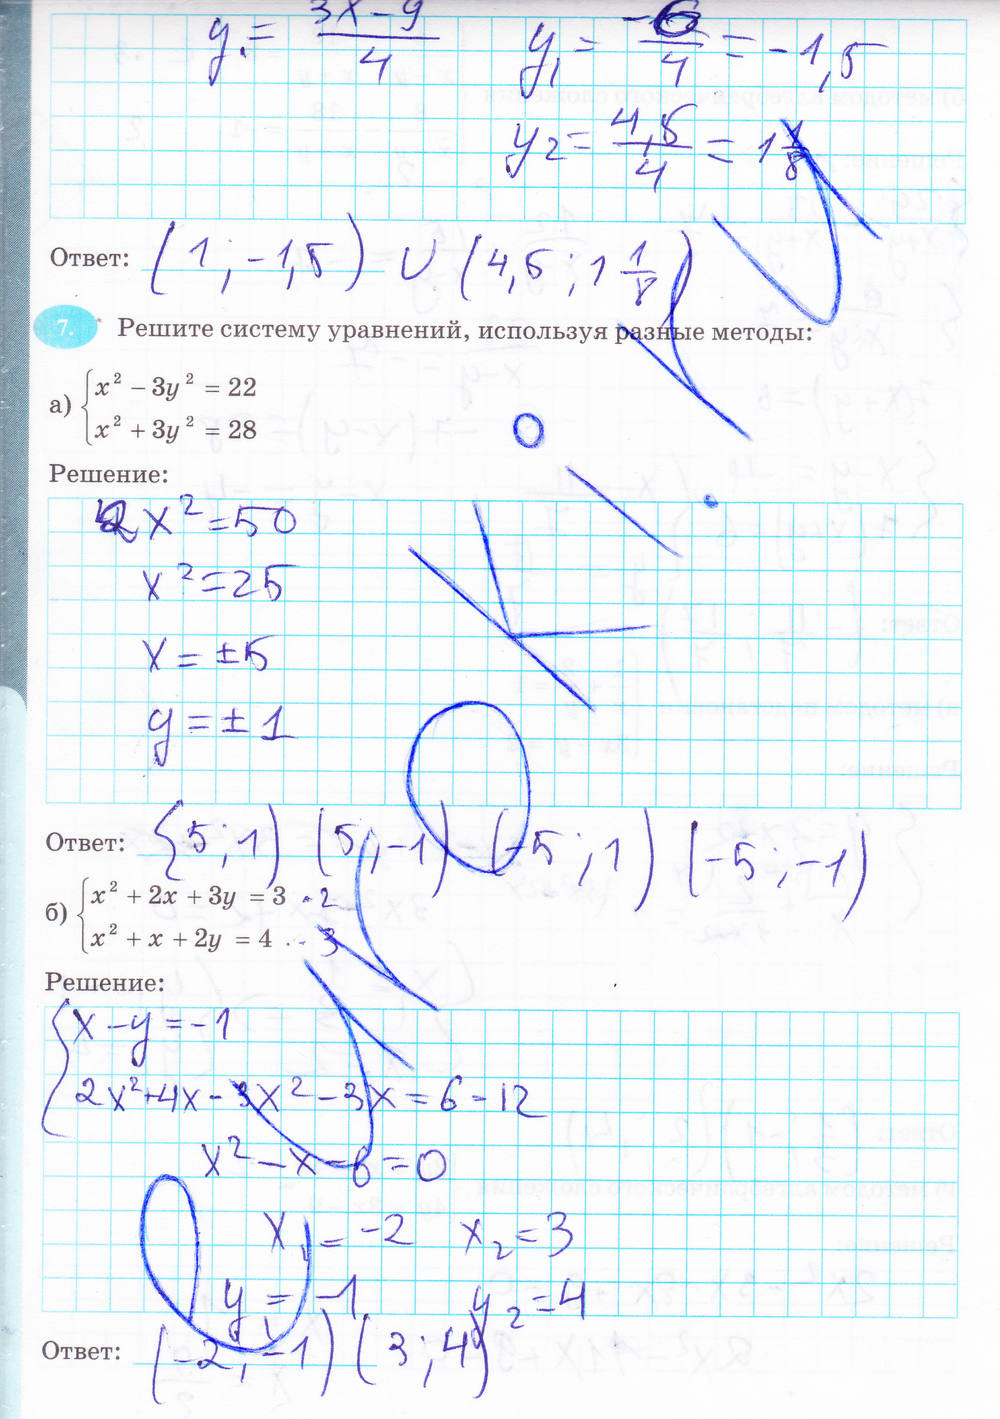 y₁ = (3x − 9)/4   y₁ = −6/4 = −1,5
y₂ = 4,5/4 = 1 1/8
Ответ: (1; −1,5) ∪ (4,5; 1 1/8)
7. Решите систему уравнений, используя разные методы:
а) { x² − 3y² = 22
x² + 3y² = 28
Решение:
2x² = 50
x² = 25
x = ±5
y = ±1
Ответ: (5; 1) (5; −1) (−5; 1) (−5; −1)
б) { x² + 2x + 3y = 3 · 2
x² + x + 2y = 4 · 3
Решение:
{ x − y = −1
2x² + 4x − 3x² − 3x = 6 − 12
x² − x − 6 = 0
x₁ = −2   x₂ = 3
y₁ = −1   y₂ = 4
Ответ: (−2; −1) (3; 4)